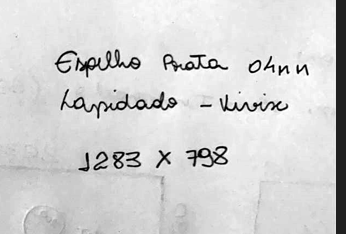 Espelho Prata 04mm
Lapidado - Vivix
1283 X 798